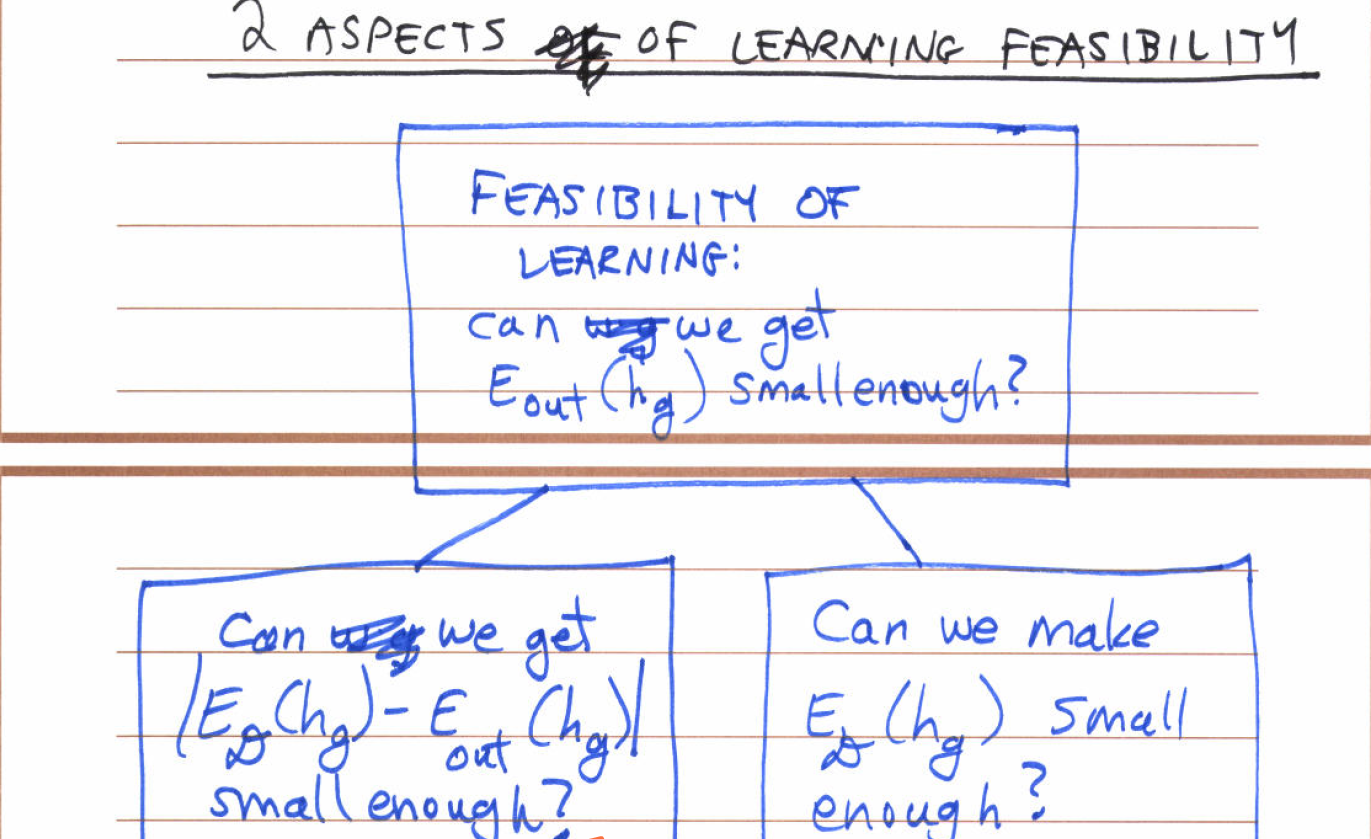 2 ASPECTS OF LEARNING FEASIBILITY
FEASIBILITY OF
LEARNING:
can we get
E_out(h_g) small enough?
Can we get
|E_𝒟(h_g) - E_out(h_g)|
small enough?
Can we make
E_𝒟(h_g) small
enough?